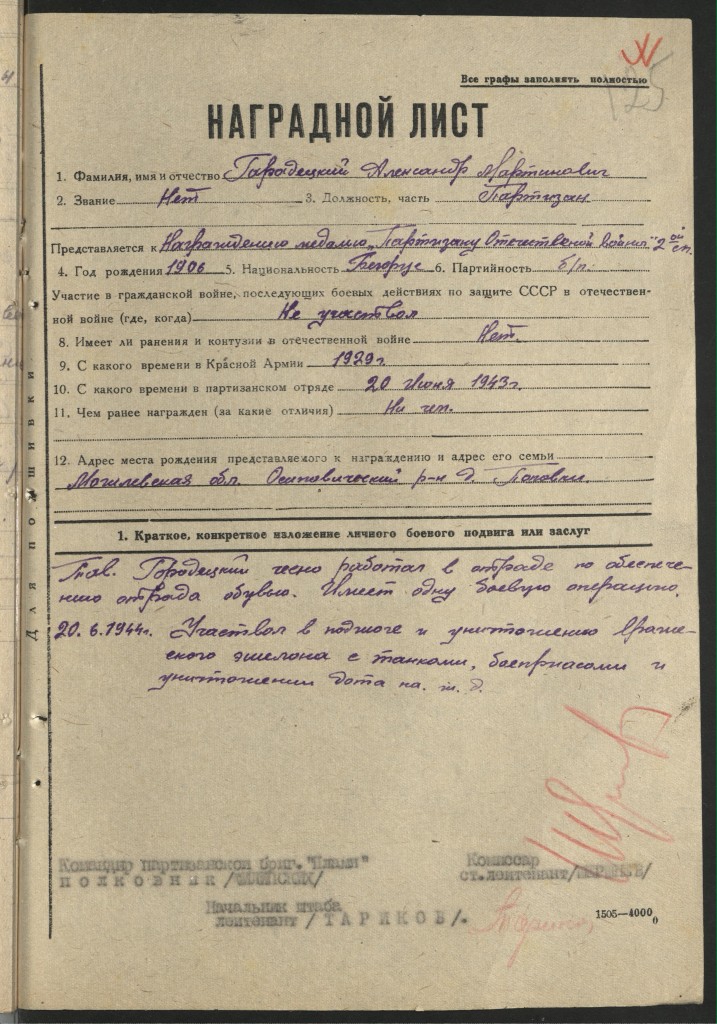 125
Все графы заполнять полностью
НАГРАДНОЙ ЛИСТ
1. Фамилия, имя и отчество Гарадецкий Александр Мартинович
2. Звание Нет 3. Должность, часть Партизан
Представляется к Награждению медалью „Партизану Отечественой войны" 2ой ст.
4. Год рождения 1906 5. Национальность Белорус 6. Партийность б/п.
Участие в гражданской войне, последующих боевых действиях по защите СССР в отечествен-
ной войне (где, когда) Не участвол
8. Имеет ли ранения и контузии в отечественной войне Нет.
9. С какого времени в Красной Армии 1929г.
10. С какого времени в партизанском отряде 20 Июня 1943г.
11. Чем ранее награжден (за какие отличия) Ни чем.
12. Адрес места рождения представляемого к награждению и адрес его семьи
Могилевская обл. Осиповический р-н д.
1. Краткое, конкретное изложение личного боевого подвига или заслуг
Тов. Городецкий чесно работал в отраде по обеспече-
нию отрада обувью. Имеет одну боевую операцию.
20.6.1944г. Участвол в поджоге и уничтожению враже-
ского эшелона с танками, боеприпасами и
уничтожении дота на ж.д.
Для подшивки
Командир партизанской бриг. "Пламя"
ПОЛКОВНИК
Комиссар
ст.лейтенант
Начальник штаба
лейтенант /ТАРИКОВ/.
1505—4000